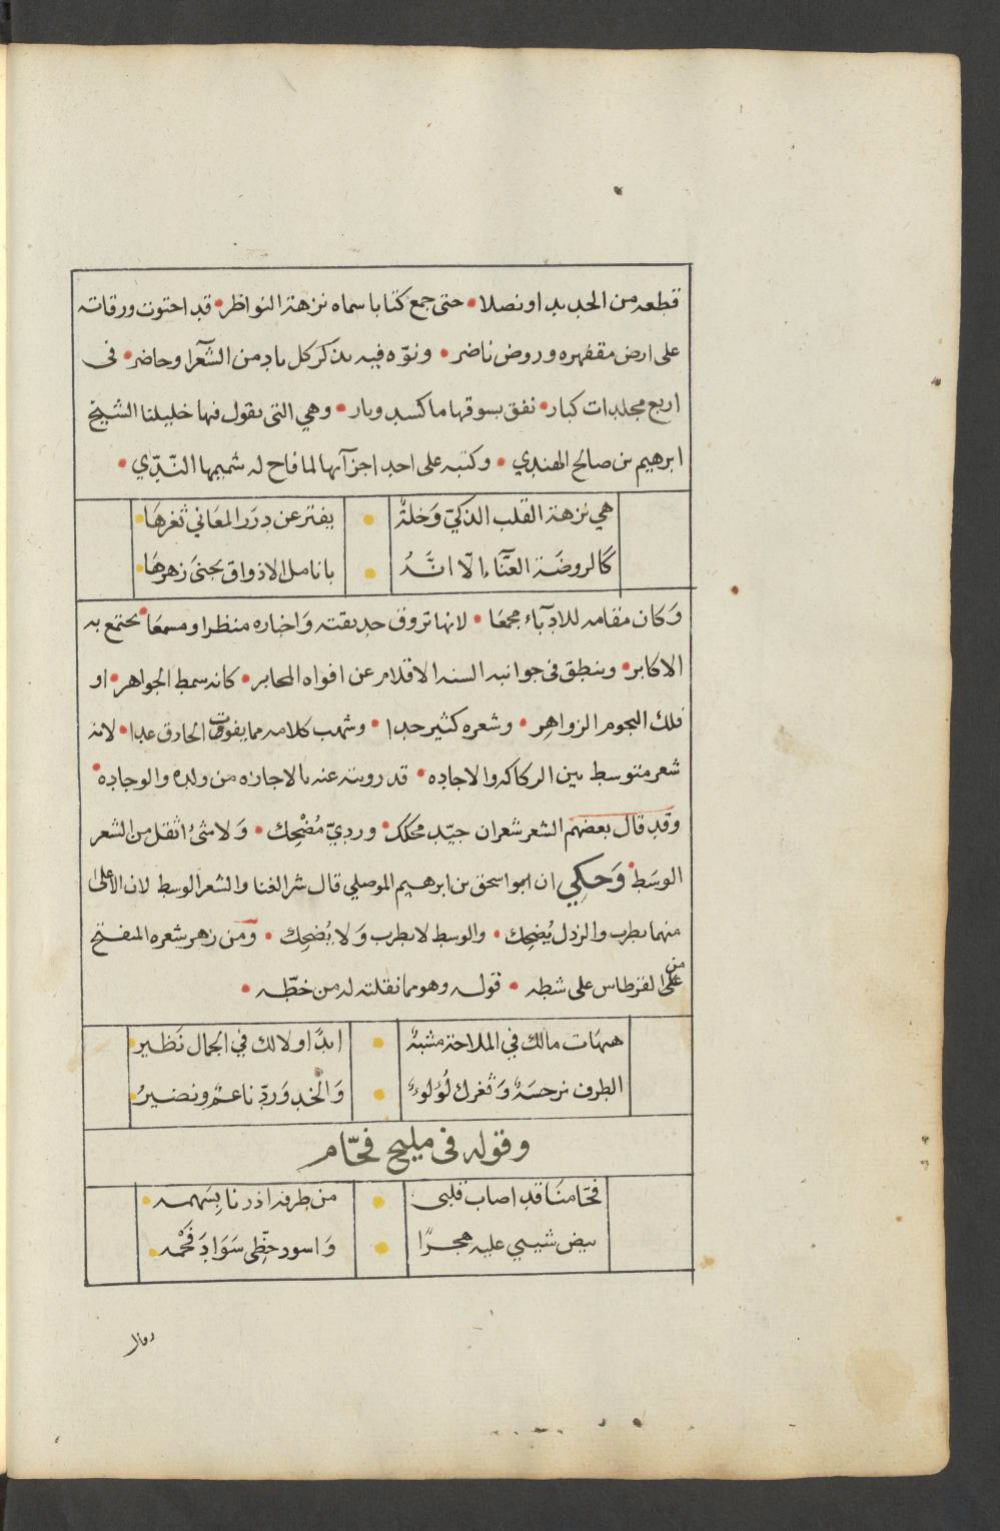 قطعه من الحديد او نصلا • حتى جمع كتابا سماه نزهة النواظر • قد احتوت ورقاته
على ارض مقفهره وروض ناضر • ونوّه فيه بذكر كل باد من الشعرآ وحاضر • فى
اربع مجلدات كبار • نفق بسوقها ما كسد وبار • وهي التى يقول فيها خليلنا الشيخ
ابرهيم بن صالح الهندي • وكتبه على احد اجزآئها لما فاح له شميمها النّدّي •
هي نزهة القلب الذكيّ وَخلةٌ • يفتر عن دِرَر المعَاني ثغرهَا •
كَالروضَة الغنّآء إلّا انَّهُ • بانامل الاذواق يجنىَ زهرهَا •
وَكان مقامه للادبآء مجمعَا • لانها تروق حديقته وَاخباره منظرا ومسمعَا • يجتمع به
الاكابر • وينطق فى جوانبه السنه الاقلام عن افواه المحابر • كانه سمط الجواهر • او
فلك النجوم الزواهِر • وشعره كثير جدا • وشهب كلامه مما يفوت الحاذق عدا • لانه
شعر متوسط بين الركاكه والاجاده • قد رويته عنه بالاجازه من ولده والوجاده •
وقد قال بعضهم الشعر شعران جيّد محكك • ورديّ مُضْحِك • وَلا شئ اثقل من الشعر
الوسَط • وَحكِي ان ابواسحق بن ابرهيم الموصلي قال شر الغنا والشعر الوسط لان الأعلىٰ
منهما يطرب والرذل يُضحِك • والوسط لا يطرب وَلا يُضحِك • وَمن زهر شعره المفتح
من على القرطاس على شطه • قوله وهو مما نقلته له من خطّه •
هيهَات مالك في الملاحَة مشبهٌ • ابدًا ولا لك في الجمال نَظير •
الطرف نرجسَةٌ وَثغرك لُؤلوءٌ • وَالخد وَردٌ ناعمٌ ونضيرُ •
وقوله فى مليح فحّام
فحّامنَا قد اصاب قلبى • من طرفه اذ رنا بِسَهمه •
بيض شيبي عليه هجرًا • وَاسود حظِّى سَوَادَ فَحْمه •
وقال